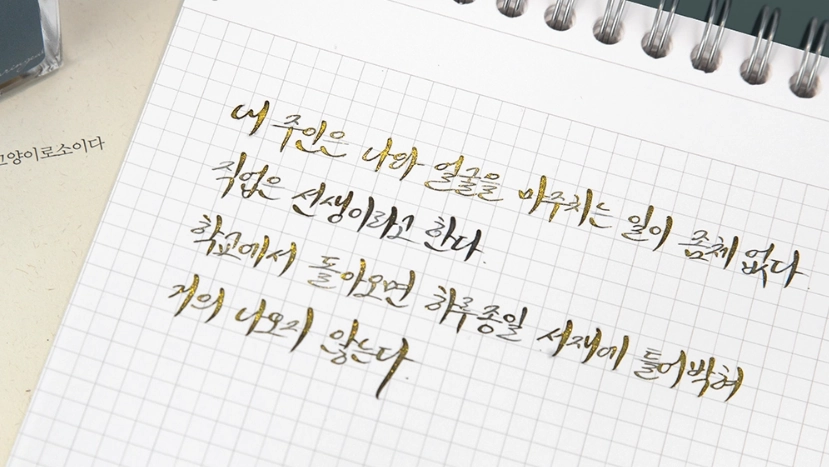 고양이로소이다
내 주인은 나와 얼굴을 마주치는 일이 좀체 없다
직업은 선생이라고 한다.
학교에서 돌아오면 하루종일 서재에 틀어박혀
거의 나오지 않는다.